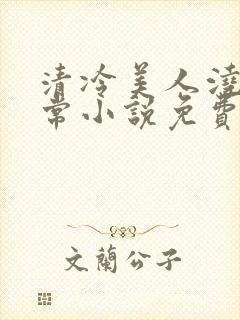 清冷美人澆
常小說免費
文蘭公子